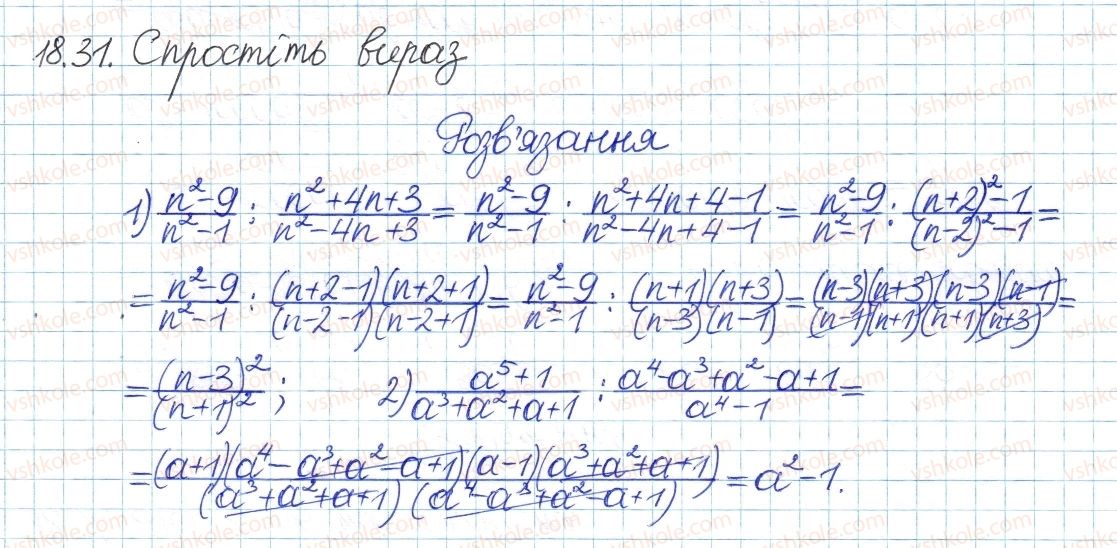 18.31. Спростіть вираз
Розв'язання
1) (n²-9)/(n²-1) : (n²+4n+3)/(n²-4n+3) = (n²-9)/(n²-1) : (n²+4n+4-1)/(n²-4n+4-1) = (n²-9)/(n²-1) : ((n+2)²-1)/((n-2)²-1) =
= (n²-9)/(n²-1) : ((n+2-1)(n+2+1))/((n-2-1)(n-2+1)) = (n²-9)/(n²-1) : ((n+1)(n+3))/((n-3)(n-1)) = ((n-3)(n+3)(n-3)(n-1))/((n-1)(n+1)(n+1)(n+3)) =
= (n-3)²/(n+1)²; 2) (a⁵+1)/(a³+a²+a+1) : (a⁴-a³+a²-a+1)/(a⁴-1) =
= ((a+1)(a⁴-a³+a²-a+1)(a-1)(a³+a²+a+1))/((a³+a²+a+1)(a⁴-a³+a²-a+1)) = a²-1.
vshkole.com